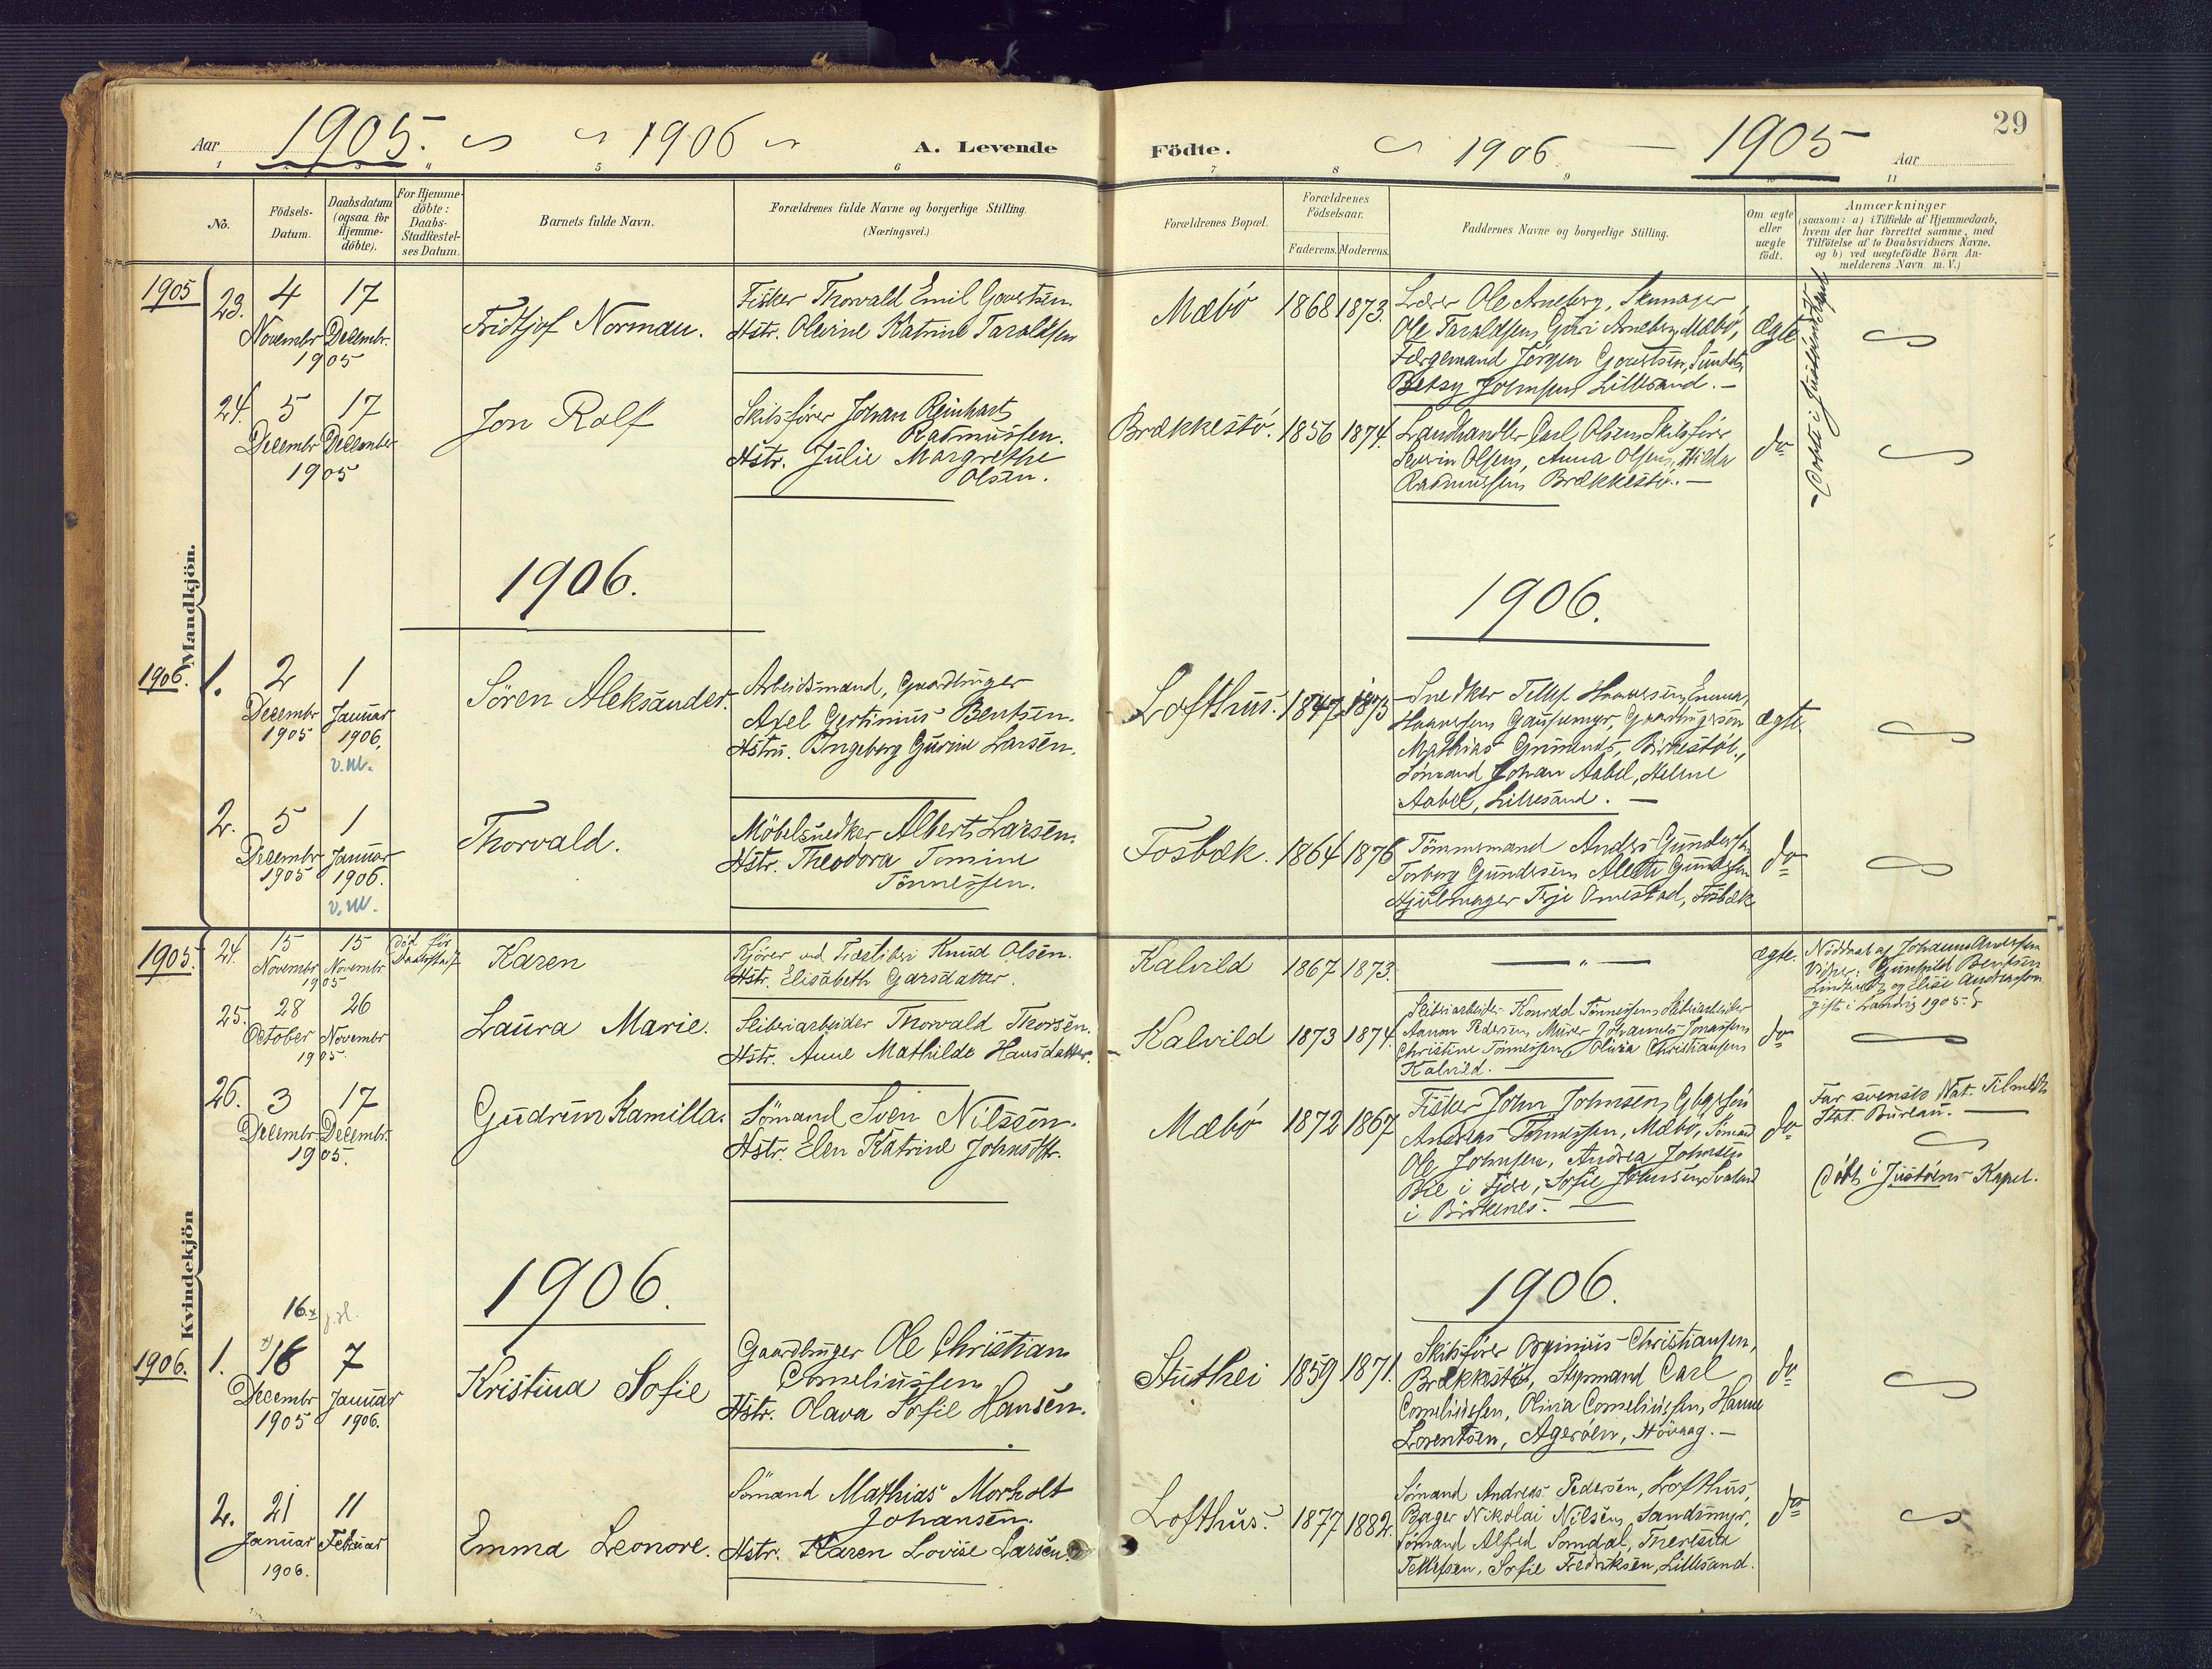 Aar 1905. 1906 A. Levende
Födte. 1906. 1905 Aar 29
1 5 6 7 8 9 11
No.
Födsels-
Datum.
Daabsdatum
(ogsaa for
Hjemme-
döbte).
For Hjemme-
döbte:
Daabs-
Stadfæstel-
ses Datum.
Barnets fulde Navn.
Forældrenes fulde Navne og borgerlige Stilling.
(Næringsvei.)
Forældrenes Bopæl.
Forældrenes
Födselsaar.
Faderens. Moderens.
Faddernes Navne og borgerlige Stilling.
Om ægte
eller
uægte
födt.
Anmærkninger
(saasom: a) i Tilfælde af Hjemmedaab,
hvem der har forrettet samme, med
Tilföielse af to Daabsvidners Navne.
og b) ved uægtefödte Börn An-
melderens Navn m. V.)
Mandkjön.
1905
23.
4
Novembr
1905
17
Decembr.
Fridtjof Norman.
Fisker Thorvald Emil Govertsen.
Hstr. Olevine Katrine Taraldsen
Mæbö
1868 1873.
Lærer Ole Arneberg, Skrmager
Ole Taraldsen, Guri Arneberg, Mæbö,
Færgemand Jörgen Govertsen,
Betsy Johnsen Lillesand. —
ægte
Döbt i Justöens Kapel
24.
5
Decembr
1905
17
December
Jon Rolf
Skibsförer Johan Reinhart
Rasmussen.
Hstr. Julie Margrethe
Olsen.
Brækkestö.
1856 1874.
Landhandler Carl Olsen, Skibsförer
Severin Olsen, Anna Olsen, Hilda
Rasmussen Brækkestö. —
do
1906.
1906.
1906.
1.
2
Decembr
1905
1
Januar
1906,
v.m.
Sören Aleksander.
Arbeidsmand, Gaardbruger
Axel Gertinius Bentsen.
Hstru. Ingeborg Gurine Larsen.
Lofthus.
1847 1873
Snedker Tellef Haavorsen, Emma
Haavorsen Gaupemyr, Gaardbrugersön
Mathias Birkestöl.,
Sömand Johan Aabel, Helene
Aabel, Lillesand. —
ægte.
2.
5
Decembr
1905
1
Januar
1906.
v.m.
Thorvald.
Möbelsnedker Albert Larsen.
Hstr. Theodora Tomine
Tönnessen.
Fosbæk.
1864 1876
Tömmermand Anders Gundersen
Torborg Gundersen Alette Gundersen
Hjulmager Terje Omestad, Fosbæk
do
Kvindekjön
1905.
24.
15
Novembr
1905
15
Novembr
Död för
Daabsstadf.
Karen
Kjörer ved Træsliberi Knud Olsen.
Hstr. Elisabeth Garsdatter.
Kalvild
1867 1873.
— " —
ægte.
Nöddöbt af Johanne Andersen
Vidner: Gunhild Bentsen
og Elise Andreassen
gift i Landvig 1905.
25.
28
October
1905.
26
Novembr
Laura Marie.
Sliberiarbeider Thorvald Thorsen.
Hstr. Anne Mathilde Hansdatter.
Kalvild
1873 1874.
Sliberiarbeider Konrad Tönnessen, Sliberiarbeider
Aanon Pedersen, Murer Johannes Jonassen
Christine Tönnessen, Olivia Christiansen
Kalvild.
do
26.
3
Decembr
1905.
17
Decembr.
Gudrun Kamilla.
Sömand Sven Nilssen.
Hstr. Elen Katrine Johnsdtr.
Mæbö
1872 1867
Fisker John Johnsen,
Andreas Tönnessen, Mæbö, Sömand
Ole Johnsen, Andrea Johnsen
i Fjære, Sofie Johnsen, Svaland
i Birkenes. —
do
Far svensk Nat. Tilmeldt
Stat. Bureau. —
Döbt i Justöens Kapel.
1906.
1906.
1906.
16.x
1.
x) 16
Decembr
1905
7
Januar
1906.
Kristina Sofie
Gaardbruger Ole Christian
Corneliussen
Hstr. Olava Sofie Hansen.
Stuthei
1859 1871.
Skibsförer Orginius Christiansen,
Brækkestö, Styrmand Carl
Corneliussen, Olivia Corneliussen, Hanne
Lorentsen, Ageröen, Hövaag. —
do
2.
21
Januar
1906.
11
Februar
Emma Leonore.
Sömand Mathias Morholt
Johansen.
Hstr. Karen Lovise Larsen.
Lofthus.
1877 1882.
Sömand Andreas Pedersen, Lofthus,
Bager Nikolai Nilsen, Sandsmyr,
Sömand Alfred Somdal, Theresia
Tellefsen, Sofie Fredriksen, Lillesand.
do